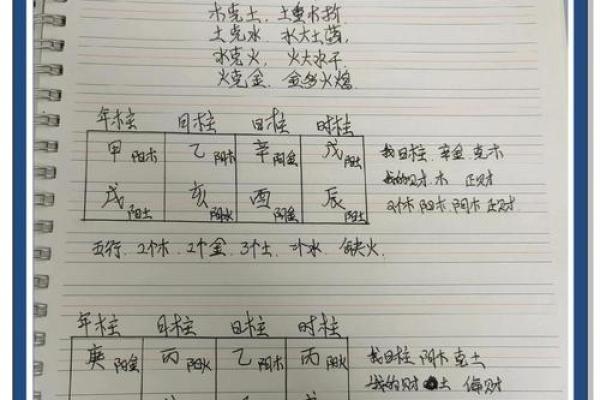 木克土，土重木折
土克水，水大土荡，
水克火，火大水干
火克金，金多火熄
年柱 月柱 日柱 时柱
甲阳木 乙阴木 辛阴金 戊阳土
戌阳土 亥阴水 酉阴金 辰阳土
我日柱．辛金．克木
我的财．木 正财
2个木 阳木．阴木 正财
五行．2个木．2个金．3个土．1个水．缺火．
年柱 月柱 日柱 时柱
庚阳金 丙阳火 乙阴木 丙阳火
我日柱 阴木 克土
我的财 土 偏财